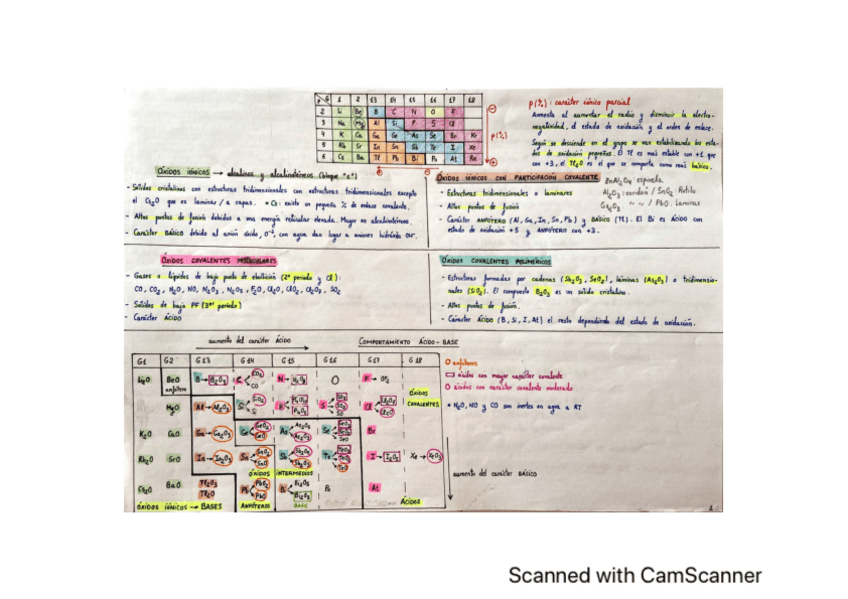 G 1 2 13 14 15 16 17 18
2 Li Be B C N O F
3 Na Mg Al Si P S Cl
4 K Ca Ga Ge As Se Br Kr
5 Rb Sr In Sn Sb Te I Xe
6 Cs Ba Tl Pb Bi Po At Rn
p(%)
p(%): carácter iónico parcial
Aumenta al aumentar el radio y disminuir la electro-
negatividad, el estado de oxidación y el orden de enlace.
Según se desciende en el grupo se van estabilizando los esta-
dos de oxidación pequeños. El Tl es más estable con +1 que
con +3, el Tl₂O es el que se comporta como más básico.
ÓXIDOS IÓNICOS → alcalinos y alcalinotérreos (bloque "s")
- Sólidos cristalinos con estructuras tridimensionales con estructuras tridimensionales excepto
el Cs₂O que es laminar / a capas. * Cs: existe un pequeño % de enlace covalente.
- Altos puntos de fusión debidos a una energía reticular elevada. Mayor en alcalinotérreos.
- Carácter BÁSICO debido al anión óxido, O⁻², con agua dan lugar a aniones hidróxido OH⁻.
ÓXIDOS IÓNICOS CON PARTICIPACIÓN COVALENTE
ZnAl₂O₄: espinela
Al₂O₃: corindón / SnO₂: Rutilo
Ga₂O₃ ~ ~ / PbO: Laminar
- Estructuras tridimensionales o laminares
- Altos puntos de fusión
- Carácter ANFÓTERO (Al, Ga, In, Sn, Pb) y BÁSICO (Tl). El Bi es ÁCIDO con
estado de oxidación +5 y ANFÓTERO con +3.
ÓXIDOS COVALENTES MOLECULARES
- Gases o líquidos de bajo punto de ebullición (2º periodo y Cl):
CO, CO₂, N₂O, NO, N₂O₃, N₂O₅, F₂O, Cl₂O, ClO₂, Cl₂O₇, SO₂
- Sólidos de bajo PF (3er periodo)
- Carácter ÁCIDO
ÓXIDOS COVALENTES POLIMÉRICOS
- Estructuras formadas por cadenas (Sb₂O₃, SeO₂), láminas (As₂O₃) o tridimensio-
nales (SiO₂). El compuesto B₂O₃ es un sólido cristalino.
- Altos puntos de fusión.
- Carácter ÁCIDO (B, Si, I, At) el resto dependiendo del estado de oxidación.
aumento del carácter ÁCIDO
COMPORTAMIENTO ÁCIDO-BASE
G1 G2 G13 G14 G15 G16 G17 G18
Li₂O BeO B → B₂O₃ C CO₂ CO N → N₂O₅ O F → OF₂
anfótero
MgO Al → Al₂O₃ Si P S Cl
ÓXIDOS COVALENTES
K₂O CaO Ga → Ga₂O₃ Ge GeO₂ GeO As As₂O₅ As₂O₃ Se Br
Rb₂O SrO In → In₂O₃ Sn SnO₂ SnO Sb Sb₂O₅ Sb₂O₃ Te I → I₂O₅ Xe → XeO₃
ÓXIDOS INTERMEDIOS
Cs₂O BaO Tl₂O₃ Tl₂O Pb PbO₂ PbO Bi Bi₂O₅ Bi₂O₃ Po At
ÓXIDOS IÓNICOS → BASES ANFÓTEROS BASE ÁCIDOS
anfóteros
óxidos con mayor carácter covalente
óxidos con carácter covalente moderado
* N₂O, NO y CO son inertes en agua a RT
aumento del carácter BÁSICO
Scanned with CamScanner